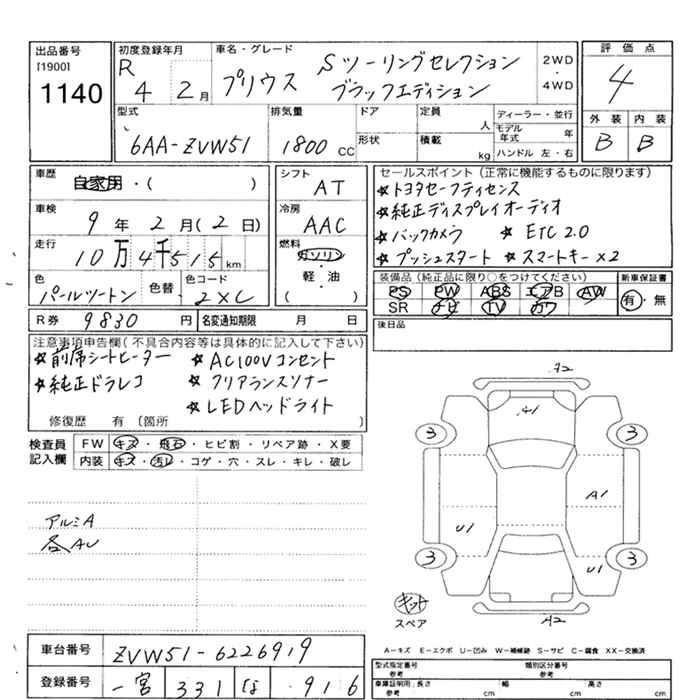 出品番号 初度登録年月 車名・グレード 評価点
[1900] R 4 2月 プリウス Sツーリングセレクション 2WD・4WD 4
1140 ブラックエディション
型式 排気量 ドア 定員 人 ディーラー・並行 外装 内装
6AA-ZVW51 1800 CC 形状 積載 kg モデル年式 年 B B
ハンドル 左・右
車歴 自家用・( ) シフト AT セールスポイント(正常に機能するものに限ります)
★トヨタセーフティセンス
車検 9年 2月(2日) 冷房 AAC ★純正ディスプレイオーディオ
走行 10万4千515km 燃料 ガソリン ★バックカメラ ★ETC2.0
軽・油 ★プッシュスタート ★スマートキー×2
色 パールツートン 色替 色コード 2XC ( ) 装備品(純正品に限り○をつけてください) 新車保証書
PS PW ABS エアB AW 有・無
SR ナビ TV カワ
R券 9830円 名変通知期限 月 日 後日品
注意事項申告欄(不具合内容等は具体的に記入して下さい)
★前席シートヒーター ★AC100Vコンセント
★純正ドラレコ ★クリアランスソナー
★LEDヘッドライト
修復歴 有 〔箇所 〕
検査員 FW キズ・飛石・ヒビ割・リペア跡・X要
記入欄 内装 キズ・汚レ・コゲ・穴・スレ・キレ・破レ
A2
A1
3 3
アルミA A1
各AU U1
3 3
U1
キット
スペア A2
A-キズ E-エクボ U-凹み W-補修跡 S-サビ C-腐食 XX-交換済
車台番号 ZVW51-6226919 型式指定番号 参考 類別区分番号 参考
登録番号 一宮 331 な ・916 車庫証明用:長さ 参考 cm 幅 cm 高さ cm